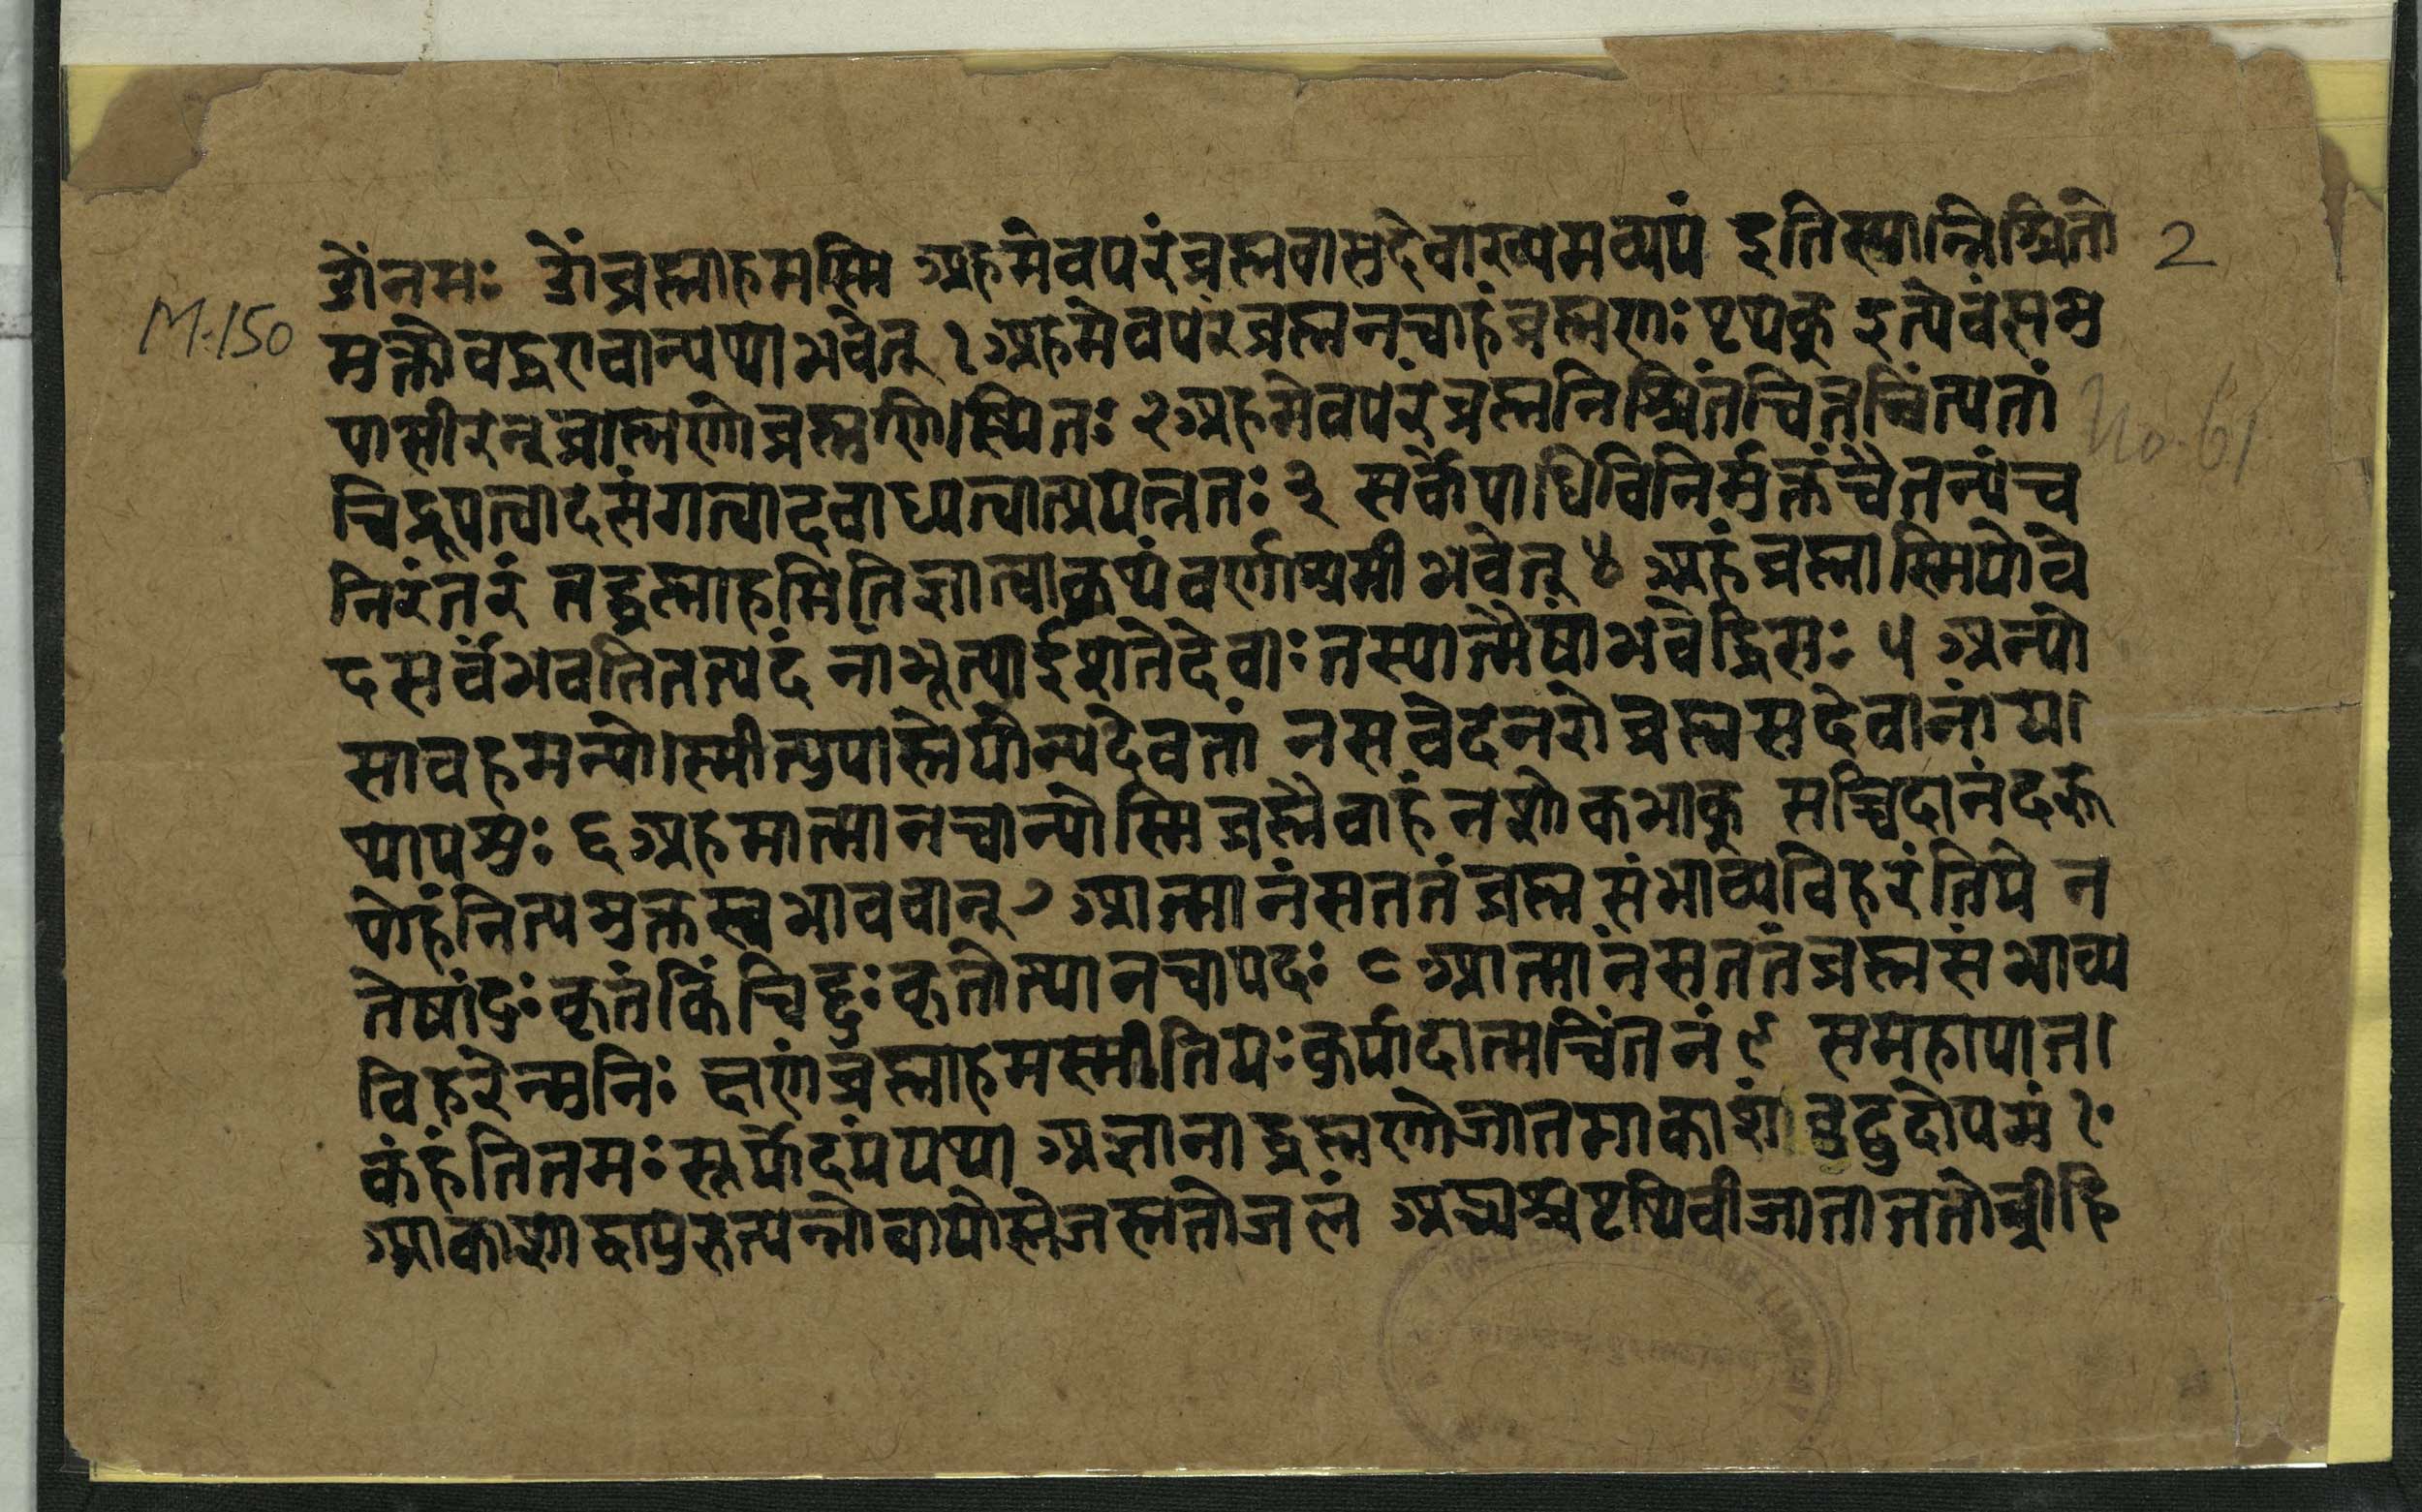 ओंनमः ओंब्रह्माहमस्मि अहमेवपरंब्रह्मवासुदेवाख्यमव्ययं इतिस्यान्निश्चितो 2
M.150 मुक्तोवद्धएवान्यथाभवेत् १ अहमेवपरंब्रह्मनचाहंब्रह्मणःपृथक् इत्येवंसमु
पासीरन्ब्राह्मणोब्रह्मणिस्थितः २ अहमेवपरंब्रह्मनिश्चितंचित्तचिंत्यतां No. 61
चिद्रूपत्वादसंगत्वादवाध्यत्वात्प्रयत्नतः ३ सर्वोपाधिविनिर्मुक्तंचैतन्यंच
निरंतरं तद्ब्रह्माहमितिज्ञात्वाकथंवर्णाश्रमीभवेत् ४ अहंब्रह्मास्मियोवे
दसर्वंभवतितत्पदं नाभूत्याईशतेदेवाःतस्यात्मैषांभवेद्धिसः ५ अन्यो
सावहमन्योस्मीत्युपास्तेयोन्यदेवतां नसवेदनरोब्रह्मसदेवानांय।
थापशुः ६ अहमात्मानचान्योस्मिब्रह्मैवाहंनशोकभाक् सच्चिदानंदरू
पोहंनित्यमुक्तस्वभाववान् ७ आत्मानंसततंब्रह्मसंभाव्यविहरंतिये न
तेषांदुःकृतंकिंचिद्दुःकृतोत्थानचापदः ८ आत्मानंसततंब्रह्मसंभाव्य
विहरेन्मुनिः क्षणंब्रह्माहमस्मीतियःकुर्यादात्मचिंतनं ९ समहापात।
कंहंतितमःसूर्योदयंयथा अज्ञानाद्ब्रह्मणोजातमाकाशंबुद्बुदोपमं १०
आकाशाद्वायुरुत्पन्नोवायोस्तेजस्ततोजलं अद्भ्यश्चपृथिवीजाताततोव्रीहि